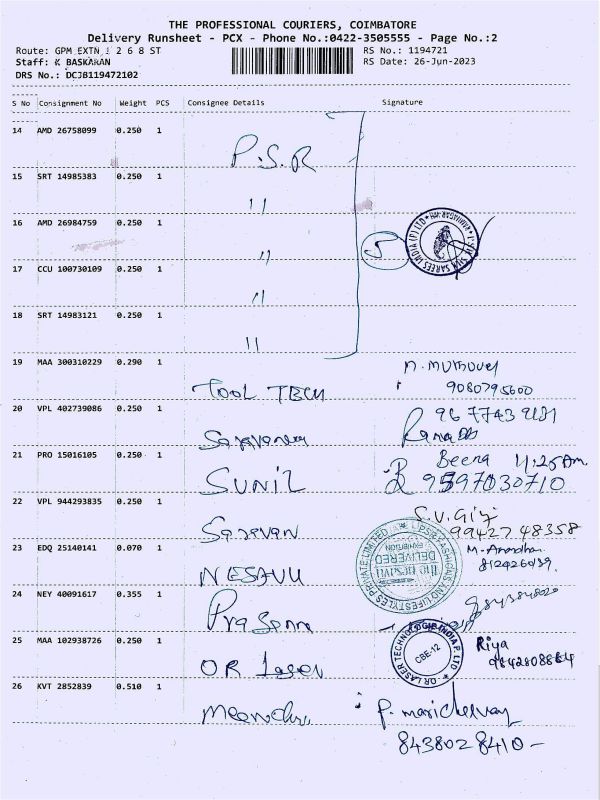 THE PROFESSIONAL COURIERS, COIMBATORE
Delivery Runsheet - PCX - Phone No.:0422-3505555 - Page No.:2
Route: GPM EXTN 1 2 6 8 ST RS No.: 1194721
Staff: K BASKARAN RS Date: 26-Jun-2023
DRS No.: DCJB119472102
S No Consignment No Weight PCS Consignee Details Signature
14 AMD 26758099 0.250 1 P.S.R
15 SRT 14985383 0.250 1 "
16 AMD 26984759 0.250 1 " 5
17 CCU 100730109 0.250 1 "
18 SRT 14983121 0.250 1 "
19 MAA 300310229 0.290 1 TOOL TECH
9080795600
20 VPL 402739086 0.250 1
21 PRO 15016105 0.250 1 SUNIL Beena 11:25 Am.
9597030710
22 VPL 944293835 0.250 1 Saravan S.V. Giri
99427 48358
23 EDQ 25140141 0.070 1 NESAVU
DELIVERED
24 NEY 40091617 0.355 1
25 MAA 102938726 0.250 1 OR Laser Riya
OR LASER TECHNOLOGIE INDIA P. LTD
CBE-12
26 KVT 2852839 0.510 1 P. marichelvam
8438028410-